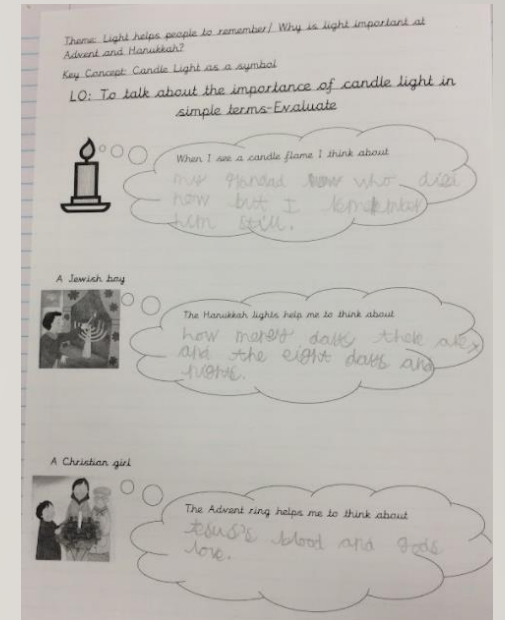 Theme: Light helps people to remember/ Why is light important at
Advent and Hanukkah?
Key Concept: Candle Light as a symbol
LO: To talk about the importance of candle light in
simple terms-Evaluate
When I see a candle flame I think about
my Grandad who died
now but I remember
him still.
A Jewish boy
The Hanukkah lights help me to think about
how many days there are
and the eight days and
nights.
A Christian girl
The Advent ring helps me to think about
Jesus's blood and gods
love.